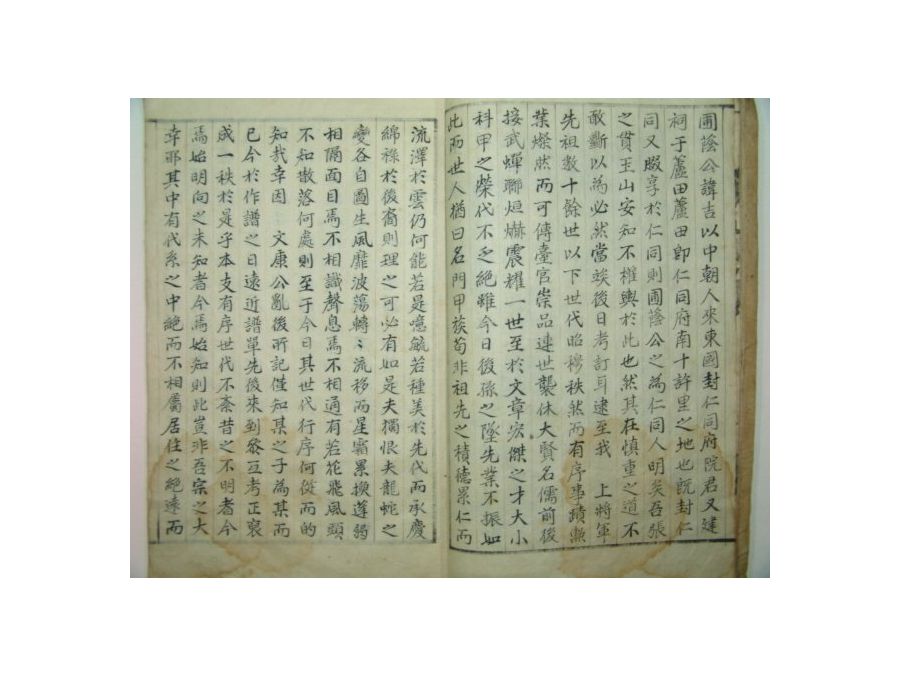 圃蔭公諱吉以中朝人來東國封仁同府院君又建
祠于蘆田蘆田卽仁同府南十許里之地也旣封仁
同又腏享於仁同則圃蔭公之為仁同人明矣吾張
之貫玉山安知不權輿於此也然其在愼重之道不
敢斷以為必然當竢後日考訂耳逮至我　上將軍
先祖數十餘世以下世代昭穆秩然而有序事蹟勲
業燦然而可傳臺官崇品連世襲休大賢名儒前後
接武蟬聯烜爀震耀一世至於文章宏傑之才大小
科甲之榮代不乏絶雖今日後孫之墜先業不振如
此而世人猶曰名門甲族苟非祖先之積德累仁而
流澤於雲仍何能若是噫毓若種美於先代而承慶
綿祿於後裔則理之可必有如是夫獨恨夫龍蛇之
變各自圖生風靡波蕩轉〻流移而星霜累換蓬蒻
相隔面目焉不相識聲息焉不相通有若花飛風頭
不知散落何處則至于今日其世代行序何從而的
知哉幸因　文康公亂後所記僅知某之子為某而
已今於作譜之日遠近譜單先後來到叅互考正裒
成一秩於是乎本支有序世代不紊昔之不明者今
焉始明向之未知者今焉始知則此豈非吾宗之大
幸耶其中有代系之中絶而不相屬居住之絶遠而